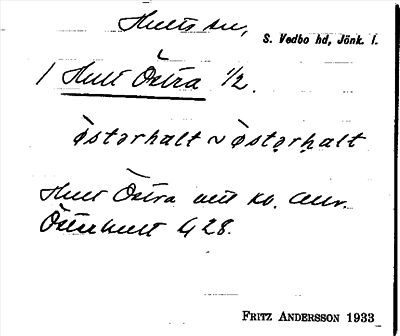 Hults sn,
S. Vedbo hd, Jönk. l.
1 Hult Östra 1/2.
òstərhalt ~ òstərhalt
Hult Östra enl ko.
Österhult 428.
FRITZ ANDERSSON 1933